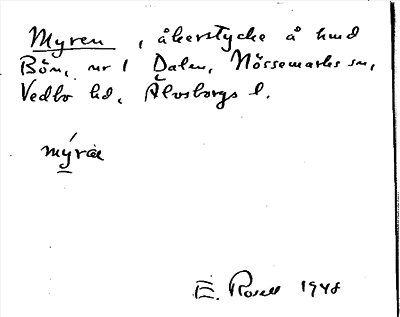 Myren, åkerstycke å hmd
Bön, nr 1 Dalen, Nössemarks sn,
Vedbo hd, Älvsborgs l.
mýrän
E. Rosell 1948